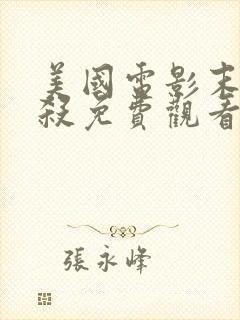 美國電影末
殺免費觀看
張永峰